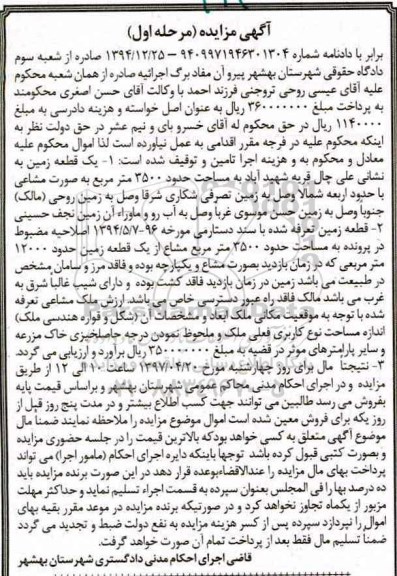 آگهی مزایده (مرحله اول)
برابر با دادنامه شماره ۹۴۰۹۹۷۱۹۴۶۳۰۱۳۰۴ – ۱۳۹۴/۱۲/۲۵ صادره از شعبه سوم
دادگاه حقوقی شهرستان بهشهر پیرو آن مفاد برگ اجرائیه صادره از همان شعبه محکوم
علیه آقای عیسی روحی تروجنی فرزند احمد با وکالت آقای حسن اصغری محکومند
به پرداخت مبلغ ۳۶۰۰۰۰۰۰۰ ریال به عنوان اصل خواسته و هزینه دادرسی به مبلغ
۱۱۴۰۰۰۰ ریال در حق محکوم له آقای خسرو بای و نیم عشر در حق دولت نظر به
اینکه محکوم علیه در فرجه مقرر اقدامی به عمل نیاورده است لذا اموال محکوم علیه
معادل و محکوم به و هزینه اجرا تامین و توقیف شده است: ۱- یک قطعه زمین به
نشانی علی چال قریه شهید آباد به مساحت حدود ۳۵۰۰ متر مربع به صورت مشاعی
با حدود اربعه شمالا وصل به زمین تصرفی شکاری شرقا وصل به زمین روحی (مالک)
جنوبا وصل به زمین حسن موسوی غربا وصل به آب رو و ماوراء آن زمین نجف حسینی
۲- قطعه زمین تعرفه شده با سند دستارمی مورخه ۹۶-۱۳۹۴/۵/۷ اصلاحیه مضبوط
در پرونده به مساحت حدود ۳۵۰۰ متر مربع مشاع از یک قطعه زمین حدود ۱۲۰۰۰
متر مربعی که در زمان بازدید بصورت مشاع و یکپارچه بوده و فاقد مرز و سامان مشخص
در طبیعت می باشد زمین در زمان بازدید فاقد کشت بوده و دارای شیب غالبا شرق به
غرب می باشد مالک فاقد راه عبور دسترسی خاص می باشد. ارزش ملک مشاعی تعرفه
شده با توجه به موقعیت مکانی ملک ابعاد و مشخصات آن (شکل و قواره هندسی ملک)
اندازه مساحت نوع کاربری فعلی ملک و ملحوظ نمودن درجه حاصلخیزی خاک مزرعه
و سایر پارامترهای موثر در قضیه به مبلغ ۳۵۰۰۰۰۰۰۰ ریال برآورد و ارزیابی می گردد.
۳- نتیجتا مال برای روز چهارشنبه مورخ ۱۳۹۷/۰۴/۲۰ ساعت ۱۰ الی ۱۲ از طریق
مزایده و در اجرای احکام مدنی محاکم عمومی شهرستان بهشهر و براساس قیمت پایه
بفروش می رسد طالبین می توانند جهت کسب اطلاع بیشتر و در مدت پنج روز قبل از
روز یکه برای فروش معین شده است اموال موضوع مزایده را ملاحظه نمایند ضمنا مال
موضوع آگهی متعلق به کسی خواهد بود که بالاترین قیمت را در جلسه حضوری مزایده
و بصورت کتبی قبول کرده باشد توجها باینکه دایره اجرای احکام (مامور اجرا) می تواند
پرداخت بهای مال مزایده را عندالاقضاءبوعده قرار دهد در این صورت برنده مزایده باید
ده درصد بها را فی المجلس بعنوان سپرده به قسمت اجراء تسلیم نماید و حداکثر مهلت
مزبور از یکماه تجاوز نخواهد کرد و در صورتیکه برنده مزایده در موعد مقرر بقیه بهای
اموال را نپردازد سپرده پس از کسر هزینه مزایده به نفع دولت ضبط و تجدید می گردد
ضمنا تسلیم مال فقط بعد از پرداخت تمام آن صورت خواهد گرفت.
قاضی اجرای احکام مدنی دادگستری شهرستان بهشهر